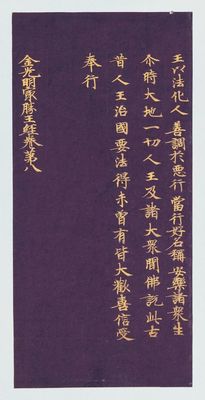 王以法化人善調於惡行當行好名稱安樂諸衆生
尒時大地一切人王及諸大衆聞佛説此古
昔人王治國要法得未曾有皆大歡喜信受
奉行
金光明最勝王經卷第八